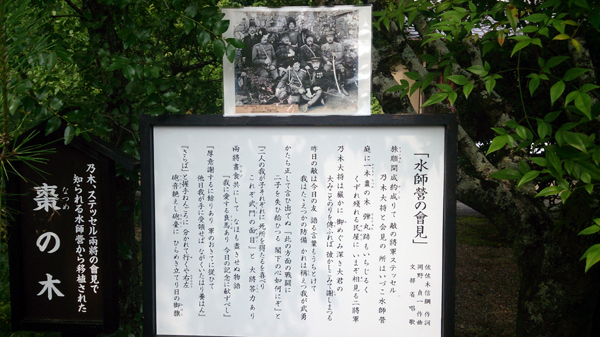 「水師營の會見」
佐佐木信綱 作詞
岡野貞一 作曲
文部省唱歌
旅順開城約成りて 敵の將軍ステッセル
乃木大將と会見の 所はいづこ水師營
庭に一本棗の木 弾丸跡もいちじるく
くずれ残れる民屋に いまぞ相見る二將軍
乃木大將は厳かに 御めぐみ深き大君の
大みことのりを傳ふれば 彼かしこみて謝しまつる
昨日の敵は今日の友 語る言葉もうちとけて
我はたたえつかの防備 かれは稱えつ我が武勇
かたち正して言ひ出でぬ 「此の方面の戦闘に
二子を失ひ給ひつる 閣下の心如何にぞ」と
「二人の我が子それぞれに 死所を得たるを喜べり
これぞ武門の面目」と 大將答力あり
両將晝食共にして なほも盡きせぬ物語
「我に愛する良馬あり 今日の記念に献ずべし」
「厚意謝するに餘りあり 軍のおきてに従ひて
他日我が手に受領せば ながくいたはり養はん」
「さらば」と握手ねんごろに 分かれて行くや右左
砲音絶えし砲臺に ひらめき立てり日の御旗
乃木、ステッセル両將の會見で
知られる水師營から移植された
棗の木
なつめ